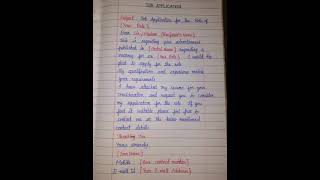 JOB APPLICATION
Subject : Job Application for the Role of
[Your Role]
Dear Sir/Madam [Employer's Name],
This is regarding your advertisement
published in [Portal Name] regarding a
vacancy for an [Role]. I would be
glad to apply for the role.
My qualification and experience match
your requirements.
I have attached my resume for your
consideration and request you to consider
my application for the role. If you
find it suitable please feel free to
contact me at the below mentioned
contact details.
Thanking You
Yours sincerely,
[Your Name]
Mobile : [Your contact number]
E-mail Id : [Your E-mail Address]